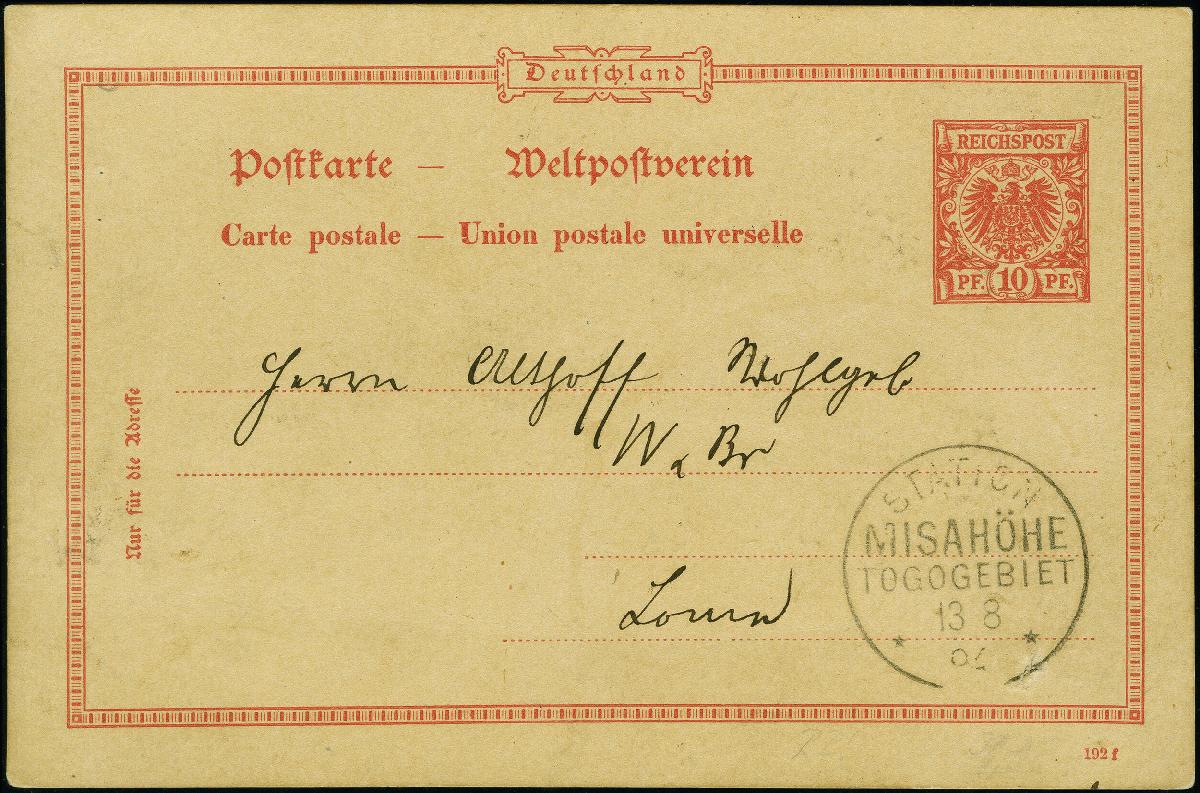 Deutschland
Postkarte — Weltpostverein
REICHSPOST
PF. 10 PF.
Carte postale — Union postale universelle
Herrn Althoff Wohlgeb
W. Br
Nur für die Adresse
Lome
STATION
MISAHÖHE
TOGOGEBIET
13 8
192 f